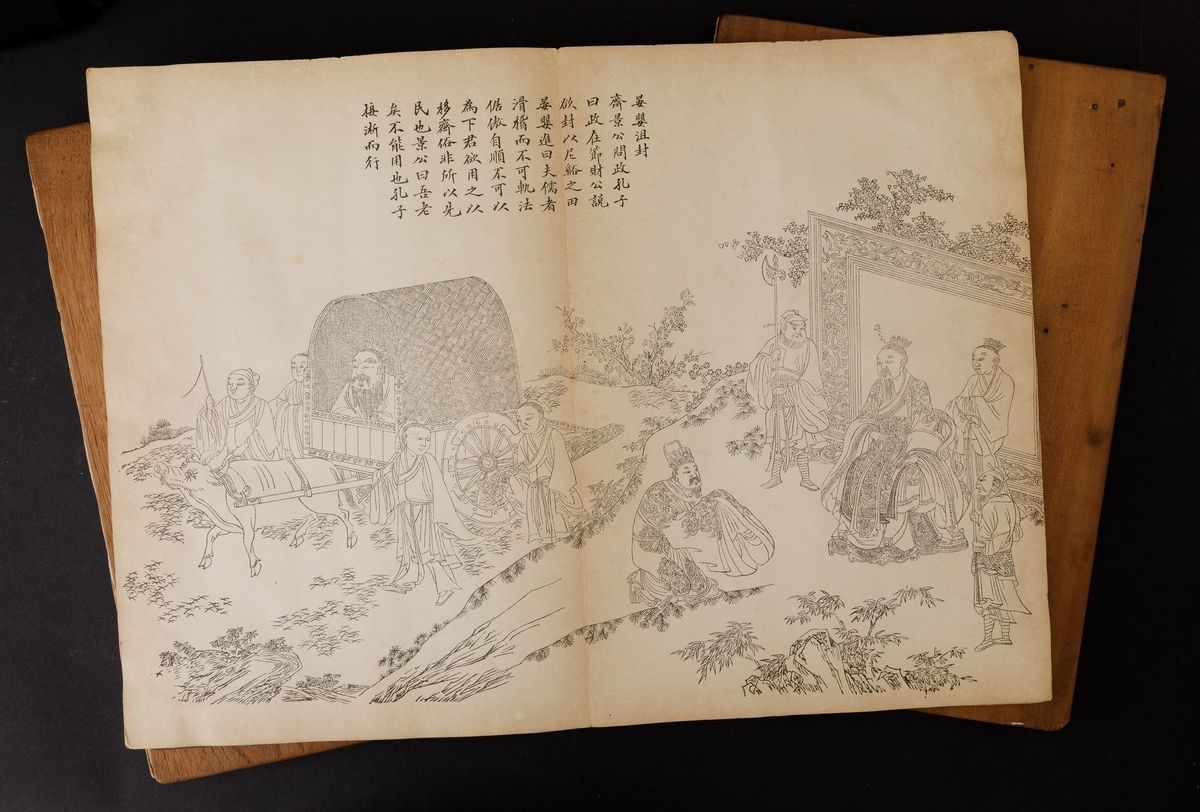 晏嬰沮封
齊景公問政孔子
曰政在節財公説
欲封以尼谿之田
晏嬰進曰夫儒者
滑稽而不可軌法
倨傲自順不可以
為下君欲用之以
移齊俗非所以先
民也景公曰吾老
矣不能用也孔子
接淅而行